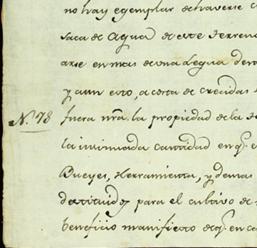 no hay egemplar de haverse c
saca de Agua de este terreno
arse en mas de una legua de
y aun esto, a costa de crecidas
Nº 78
fuera nrã. la propiedad de la
la insinuada cantidad en q.e
Bueyes, herramienta, y demas
destituidos para el cultivo de
beneficio manifiesto de q.e en ca